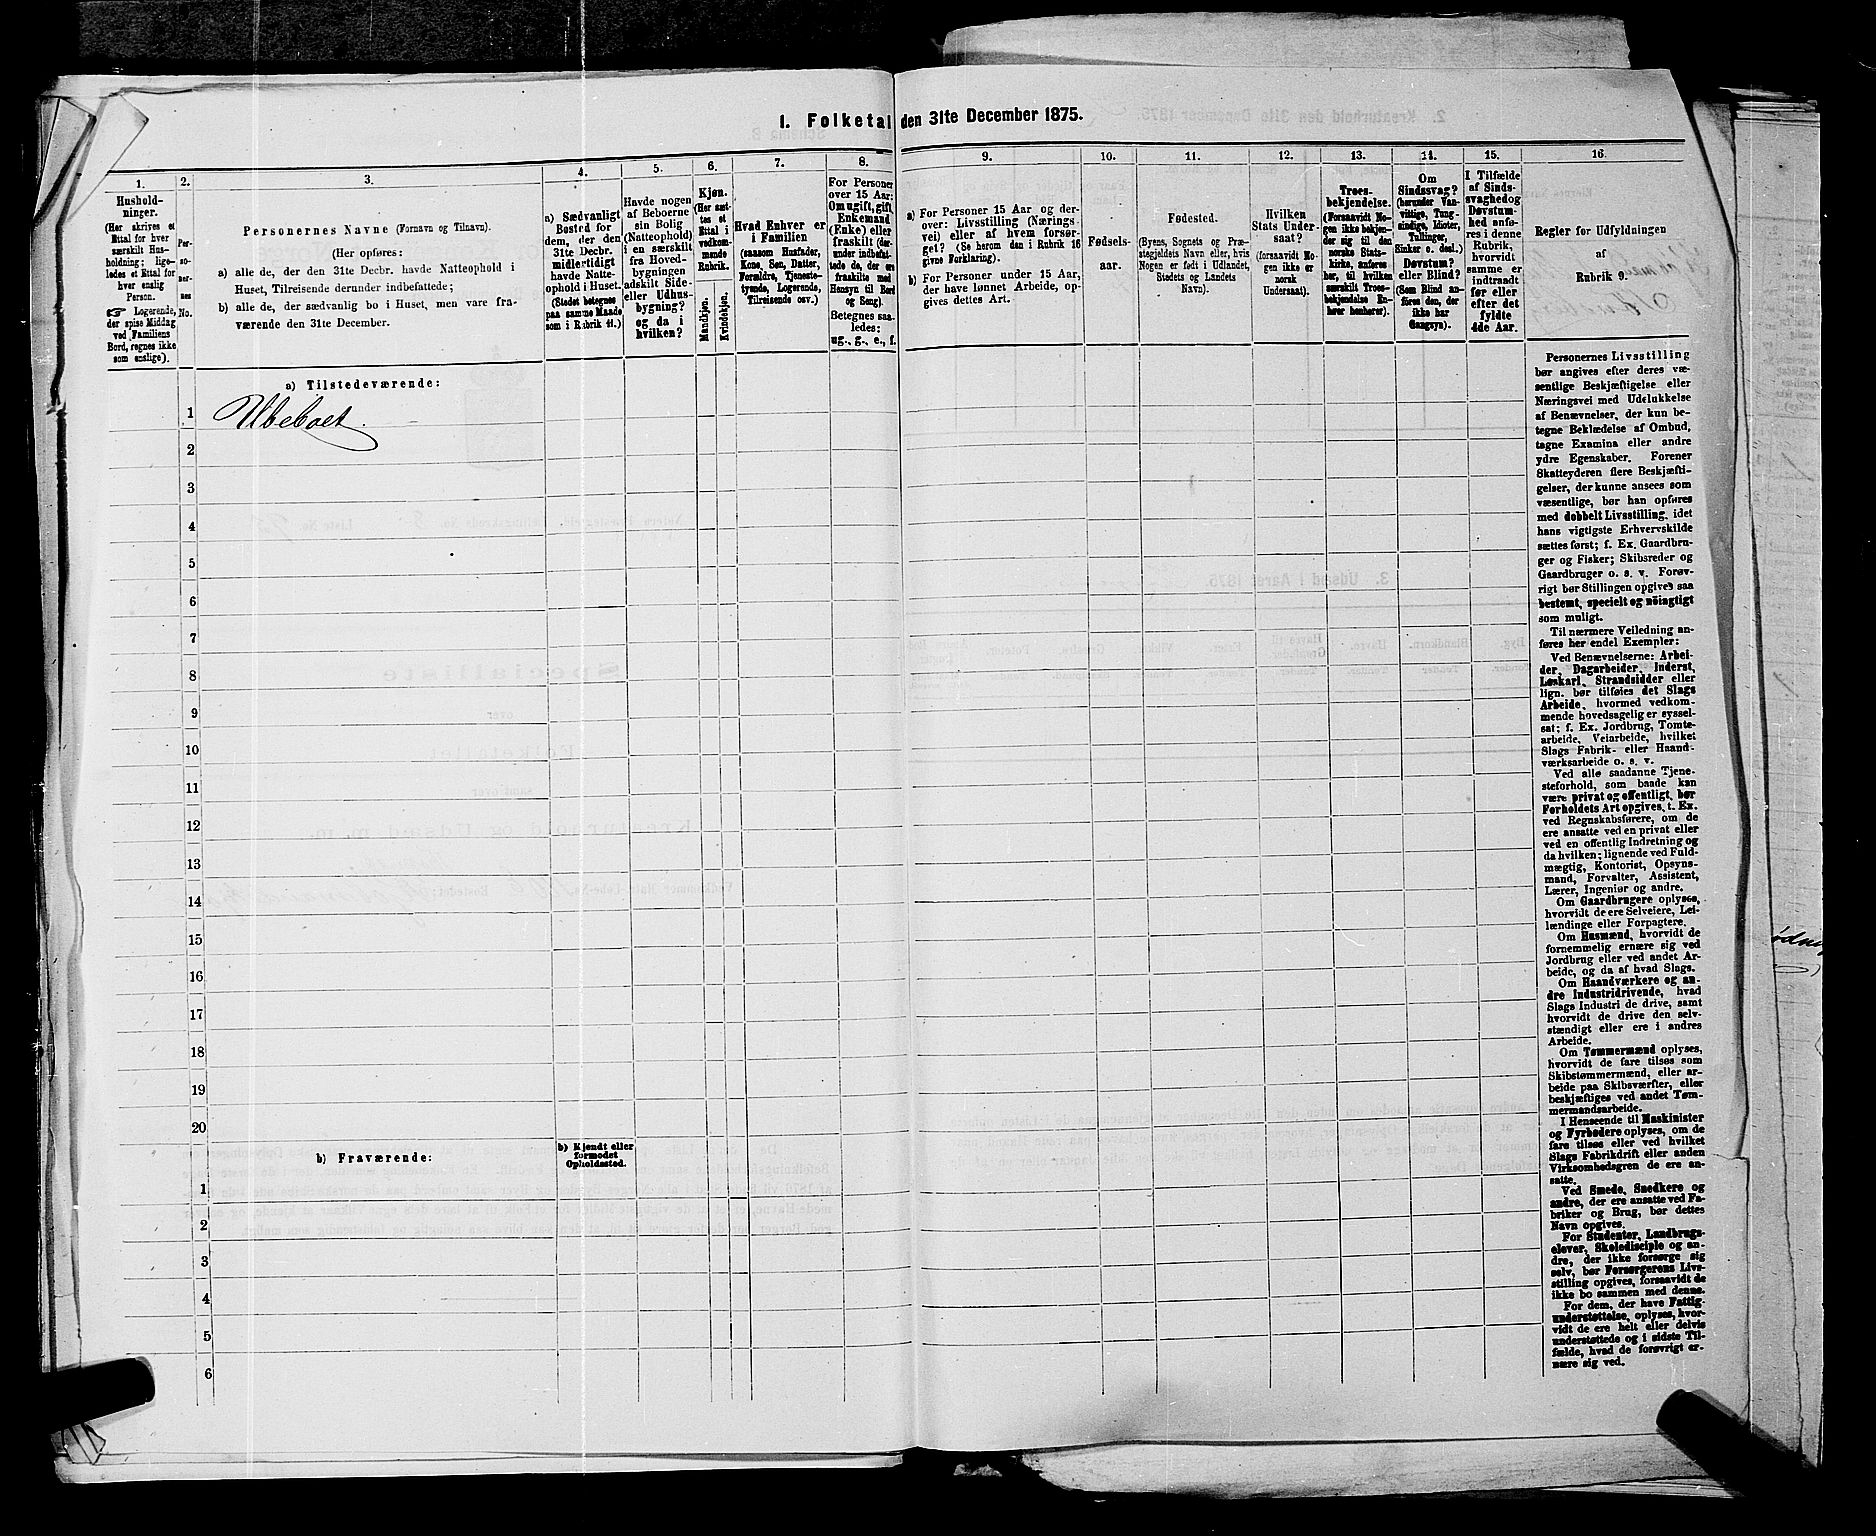 1. Folketal den 31te December 1875.
1.
Hushold-
ninger.
(Her skrives et
Ettal for hver
særskilt Hus-
holdning; lige-
ledes et Ettal for
hver enslig
Person.
Logerende,
der spise Middag
ved Familiens
Bord, regnes ikke
som enslige).
2.
Per-
so-
ner-
nes
No.
3.
Personernes Navne (Fornavn og Tilnavn).
(Her opføres:
a) alle de, der den 31te Decbr. havde Natteophold i
Huset, Tilreisende derunder indbefattede;
b) alle de, der sædvanlig bo i Huset, men vare fra-
værende den 31te December.
4.
a) Sædvanligt
Bosted for
dem, der den
31te Decbr.
midlertidigt
havde Natte-
ophold i Huset.
(Stedet betegnes
paa samme Maade
som i Rubrik 11.)
5.
Havde nogen
af Beboerne
sin Bolig
(Natteophold)
i en særskilt
fra Hoved-
bygningen
adskilt Side-
eller Udhus-
bygning?
og da i
hvilken?
6.
Kjøn.
(Her sæt-
tes et
Ettal i
vedkom-
mende
Rubrik.
Mandkjøn.
Kvindekjøn.
7.
Hvad Enhver er
i Familien
(saasom Husfader,
Kone, Søn, Datter,
Forældre, Tjeneste-
tyende, Logerende,
Tilreisende osv.)
8.
For Personer
over 15 Aar:
Om ugift, gift,
Enkemand
(Enke) eller
fraskilt (der-
under indbefat-
tede de, der ere
fraskilte med
Hensyn til Bord
og Seng).
Betegnes saa-
ledes:
ug., g., e., f.
9.
a) For Personer 15 Aar og der-
over: Livsstilling (Nærings-
vei) eller af hvem forsør-
get? (Se herom den i Rubrik 16
givne Forklaring).
b) For Personer under 15 Aar,
der have lønnet Arbeide, op-
gives dettes Art.
10.
Fødsels-
aar.
11.
Fødested.
(Byens, Sognets og Præ-
stegjeldets Navn eller, hvis
Nogen er født i Udlandet,
Stedets og Landets
Navn).
12.
Hvilken
Stats Under-
saat?
(forsaavidt No-
gen ikke er
norsk
Undersaat).
13.
Troes-
bekjendelse.
(Forsaavidt No-
gen ikke bekjen-
der sig til den
norske Stats-
kirke, anføres
her, til hvilken
særskilt Troes-
bekjendelse En-
hver henhører).
14.
Om
Sindssvag?
(herunder Van-
vittige, Tung-
sindige, Idioter,
Tullinger,
Sinker o. desl.)
Døvstum?
eller Blind?
(Som Blind an-
føres den, der
ikke har
Gangsyn).
15.
I Tilfælde
af Sinds-
svaghed og
Døvstum-
hed anfø-
res i denne
Rubrik,
hvorvidt
samme er
indtraadt
før eller
efter det
fyldte
4de Aar.
16.
Regler for Udfyldningen
af
Rubrik 9.
a) Tilstedeværende:
1 Ubeboet.
2
3
4
5
6
7
8
9
10
11
12
13
14
15
16
17
18
19
20
b) Fraværende:
b) Kjendt eller
formodet
Opholdssted.
1
2
3
4
5
6
Personernes Livsstilling
bør angives efter deres væ-
sentlige Beskjæftigelse eller
Næringsvei med Udelukkelse
af Benævnelser, der kun be-
tegne Beklædelse af Ombud,
tagne Examina eller andre
ydre Egenskaber. Forener
Skatteyderen flere Beskjæfti-
gelser, der kunne ansees som
væsentlige, bør han opføres
med dobbelt Livsstilling, idet
hans vigtigste Erhvervskilde
sættes først; f. Ex. Gaardbru-
ger og Fisker; Skibsreder og
Gaardbruger o. s. v. Forøv-
rigt bør Stillingen opgives saa
bestemt, specielt og nöiagtigt
som muligt.
Til nærmere Veiledning an-
føres her endel Exempler:
Ved Benævnelserne: Arbei-
der, Dagarbeider, Inderst,
Løskarl, Strandsidder eller
lign. bør tilføies det Slags
Arbeide, hvormed vedkom-
mende hovedsagelig er syssel-
sat; f. Ex. Jordbrug, Tomte-
arbeide, Veiarbeide, hvilket
Slags Fabrik- eller Haand-
værksarbeide o. s. v.
Ved alle saadanne Tjene-
steforhold, som baade kan
være privat og offentligt, bør
Forholdets Art opgives, t. Ex.
ved Regnskabsførere, om de
ere ansatte ved en privat eller
ved en offentlig Indretning og
da hvilken; lignende ved Fuld-
mægtig, Kontorist, Opsyns-
mand, Forvalter, Assistent,
Lærer, Ingeniør og andre.
Om Gaardbrugere oplyses,
hvorvidt de ere Selveiere, Lei-
lændinge eller Forpagtere.
Om Husmænd, hvorvidt de
fornemmelig ernære sig ved
Jordbrug eller ved andet Ar-
beide, og da af hvad Slags.
Om Haandværkere og an-
dre Industridrivende, hvad
Slags Industri de drive, samt
hvorvidt de drive den selv-
stændigt eller ere i andres
Arbeide.
Om Tømmermænd oplyses,
hvorvidt de fare tilsøs som
Skibstømmermænd, eller ar-
beide paa Skibsværfter, eller
beskjæftiges ved andet Tøm-
mermandsarbeide.
I Henseende til Maskinister
og Fyrbødere oplyses, om de
fare tilsøs eller ved hvilket
Slags Fabrikdrift eller anden
Virksomhedsgren de ere an-
satte.
Ved Smede, Snedkere og
andre, der ere ansatte ved Fa-
briker og Brug, bør dettes
Navn opgives.
For Studenter, Landbrugs-
elever, Skoledisciple og an-
dre, der ikke forsørge sig
selv, bør Forsørgerens Livs-
stilling opgives, forsaavidt de
ikke bo sammen med denne.
For dem, der have Fattig-
understøttelse, oplyses, hvor-
vidt de ere helt eller delvis
understøttede og i sidste Til-
fælde, hvad de forøvrigt er-
nære sig ved.